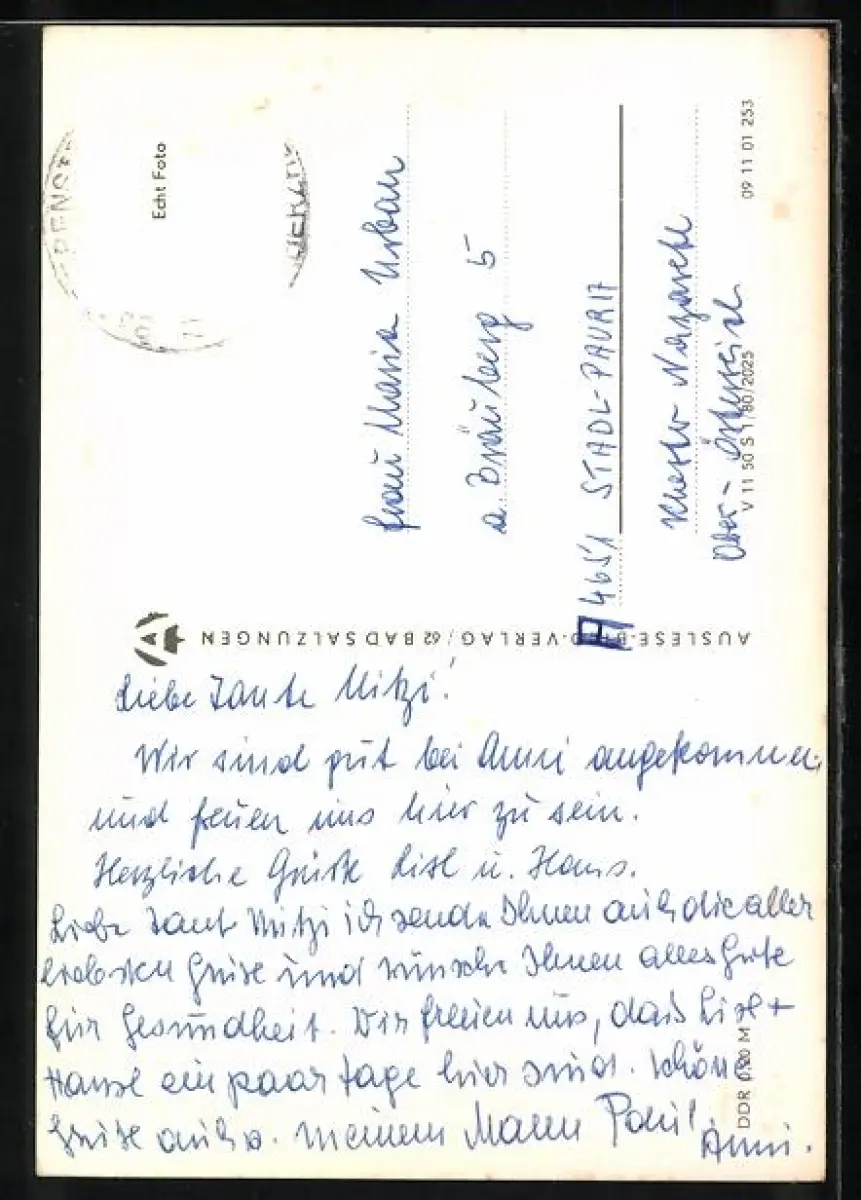 Liebe Tante Mitzi!
Wir sind gut bei Anni angekommen
und freuen uns hier zu sein.
Herzliche Grüße Lisl u. Hans.
Liebe Tante Mitzi ich sende Ihnen auch die aller
liebsten Grüße und wünsche Ihnen alles Gute
für Gesundheit. Wir freuen uns, daß Lisl +
Hansl ein paar Tage hier sind. Schöne
Grüße auch v. meinem Mann Paul.
Anni.
Echt Foto
Frau Maria Urban
a. Bräuberg 5
A 4651 STADL-PAURA 17
Kloster Nazareth
Ober-Österreich
V 11 50 S 1/80/2025
09 11 01 253
AUSLESE-BILD-VERLAG / 62 BAD SALZUNGEN
DDR 0,80 M